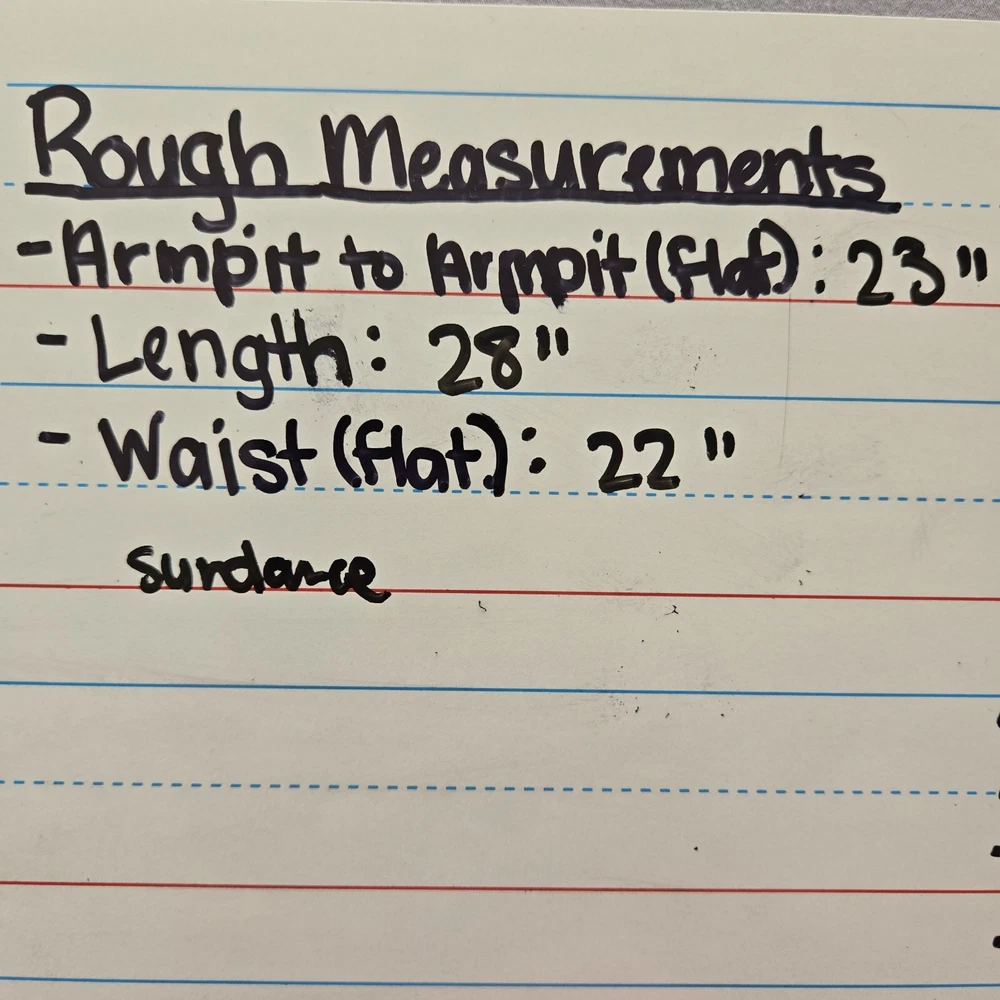 Rough Measurements
- Armpit to Armpit (flat): 23"
- Length: 28"
- Waist (flat): 22"
sundance